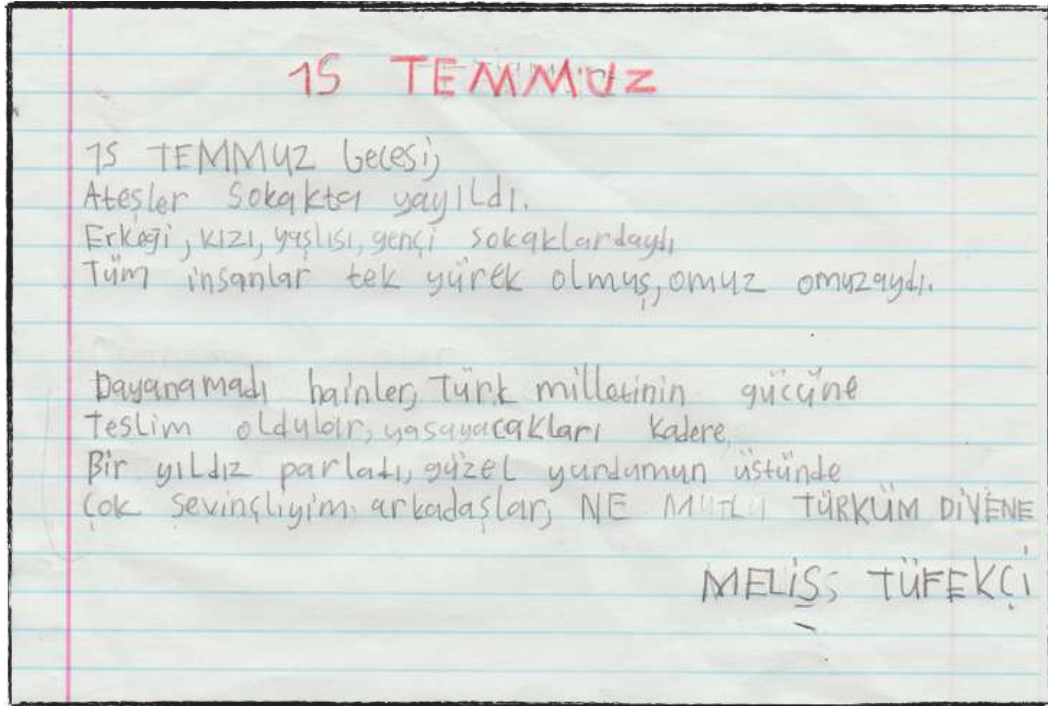 15 TEMMUZ
15 TEMMUZ Gecesi,
Ateşler Sokakta yayıLdı.
Erkeği, kızı, yaşlısı, gençi sokaklardaydı
Tüm insanlar tek yürek olmuş, omuz omuzaydı.
Dayanamadı hainler, Türk milletinin gücüne
Teslim oldular, yaşayacakları kadere,
Bir yıldız parladı, güzel yurdumun üstünde
Çok sevinçliyim arkadaşlar, NE MUTLU TÜRKÜM DİYENE
MELİS TÜFEKÇİ